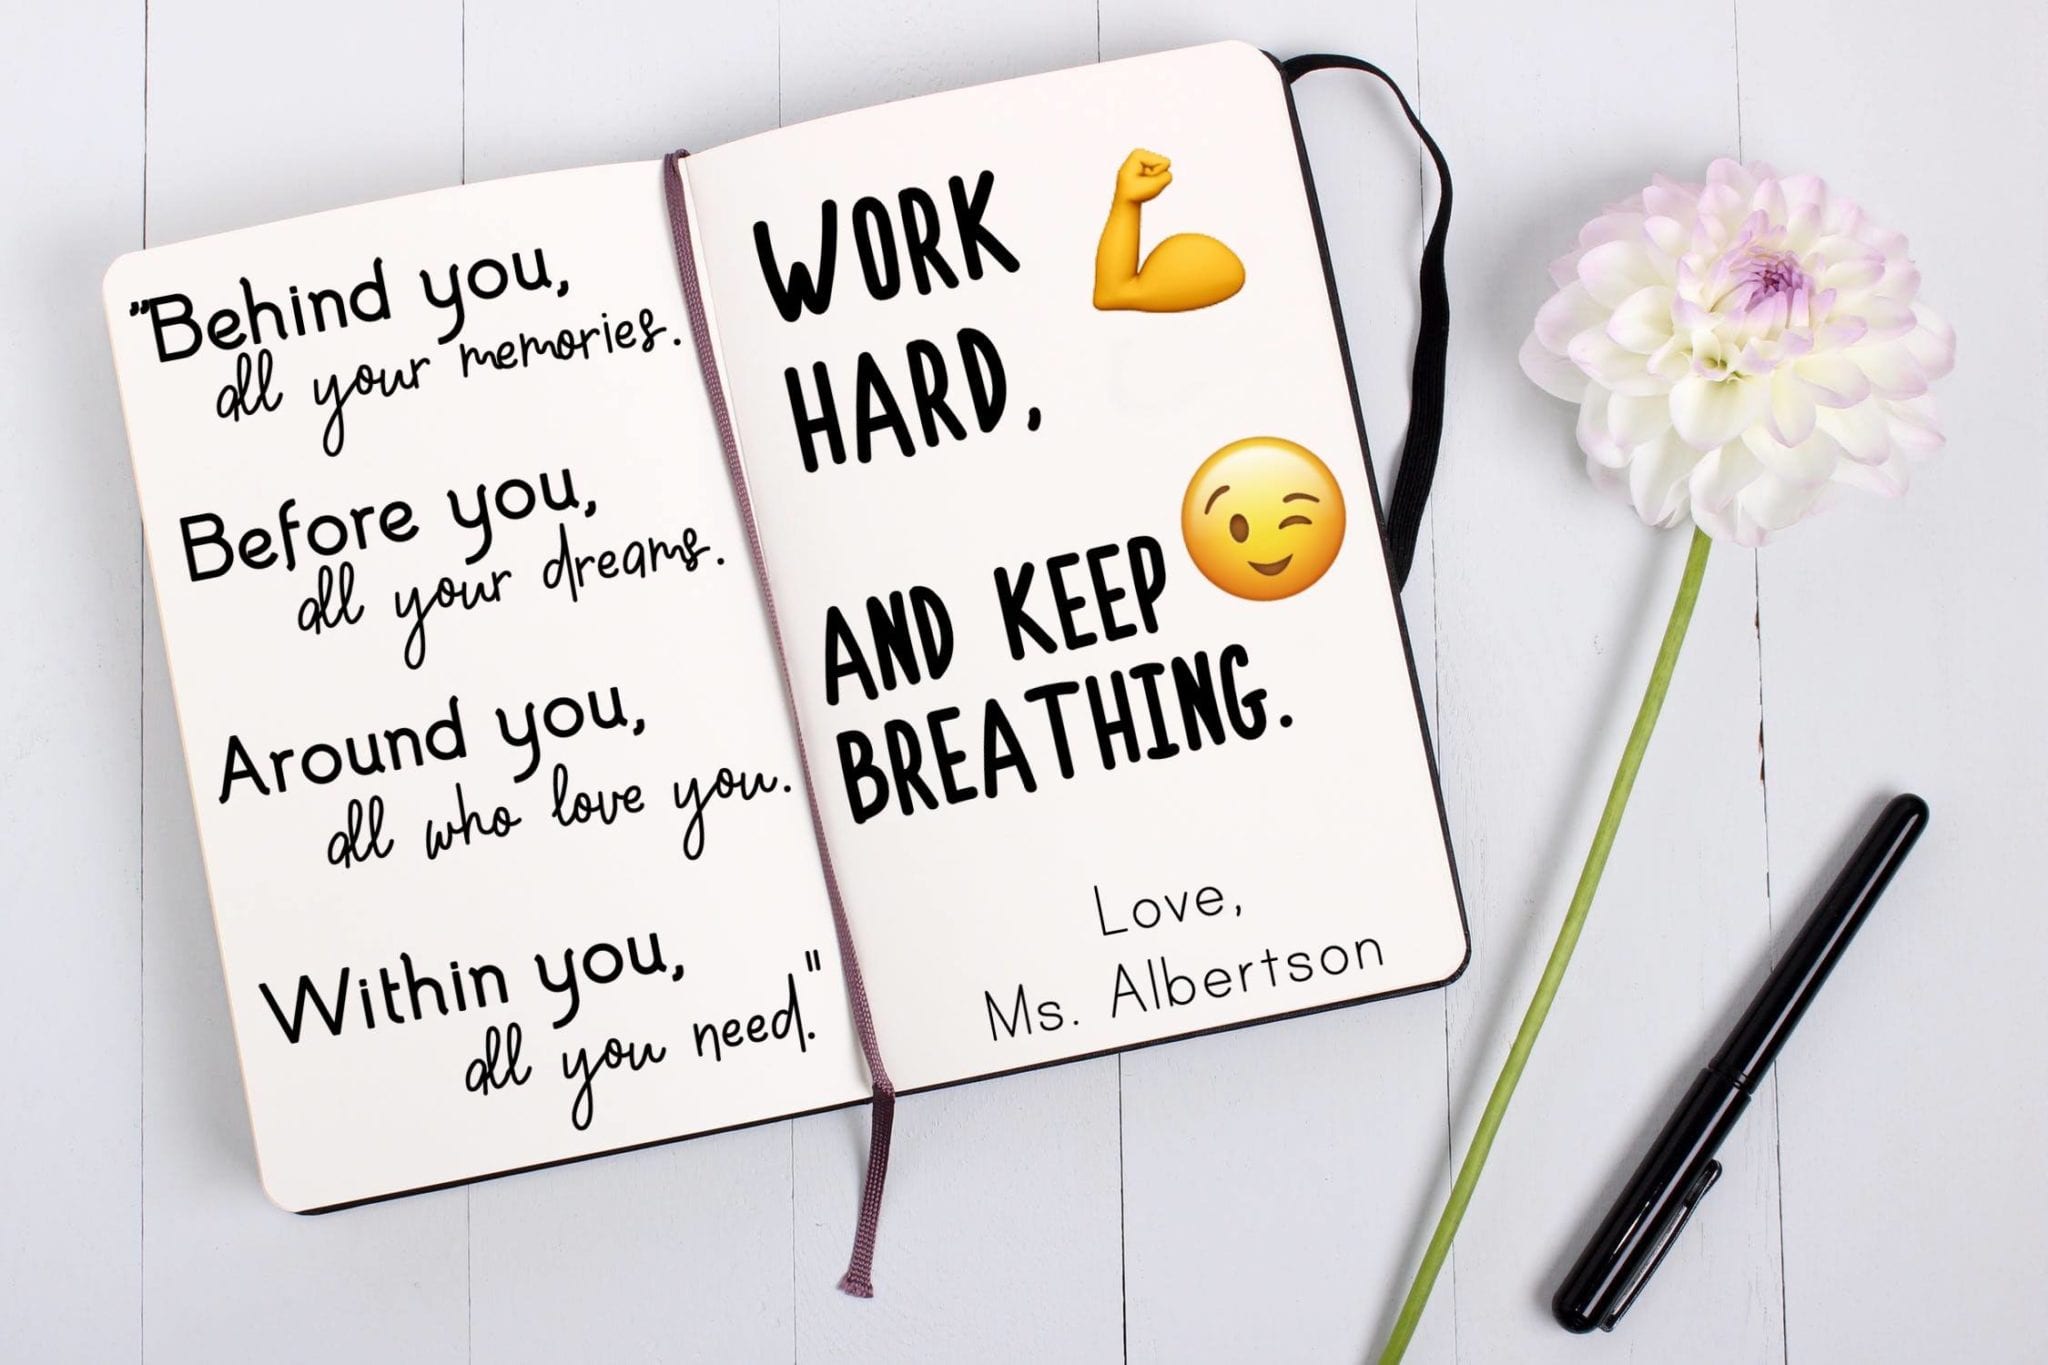 "Behind you,
all your memories.
Before you,
all your dreams.
Around you,
all who love you.
Within you,
all you need."
WORK
HARD,
AND KEEP
BREATHING.
Love,
Ms. Albertson